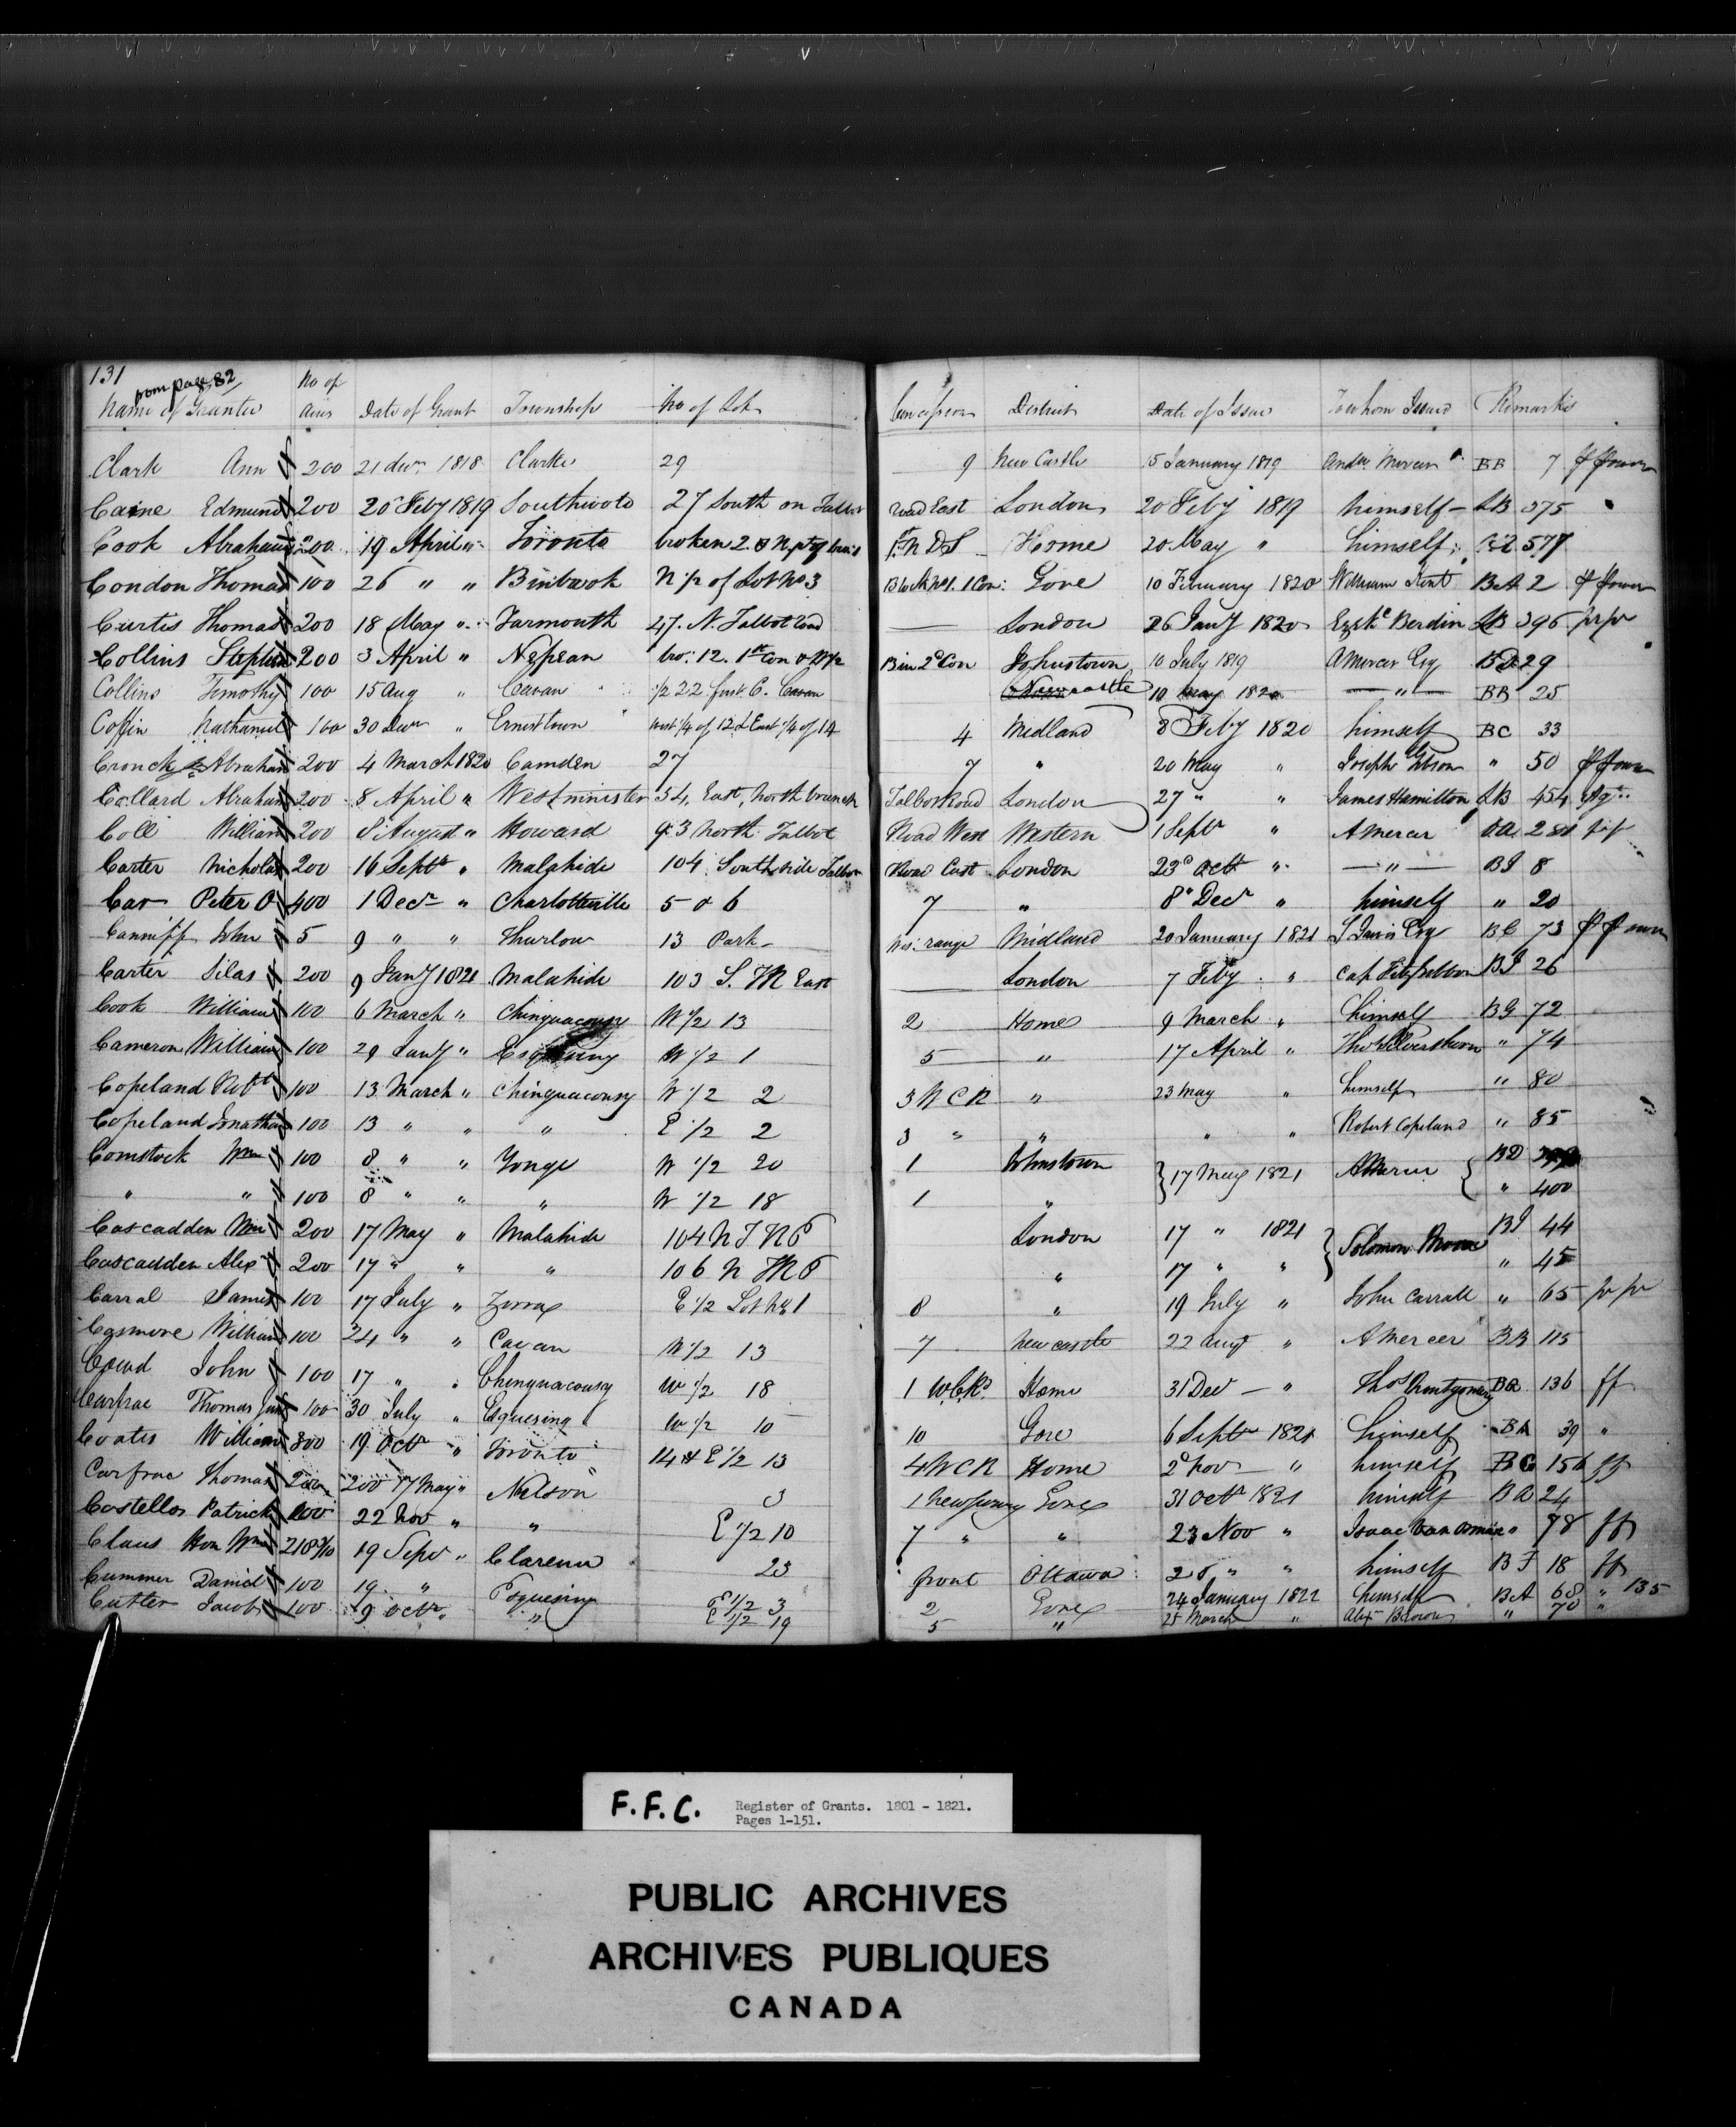 131
from page 82
Name of Grantee No of Acres Date of Grant Township No of Lot Concession District Date of Issue To whom Issued Remarks
Clark Ann 200 21 decr 1818 Clarke 29 9 New Castle 15 January 1819 BB 7
Caine Edmund 200 20 Feby 1819 Southwold 27 South on Talbot road East London 20 Feby 1819 himself LB 375
Cook Abraham 200 19 April " Toronto broken 2 Home 20 May " himself 577
Condon Thomas 100 26 " " Binbrook N ½ of Lot No 3 Block No 1. 1 Con: Gore 10 February 1820 William Kent BA 2
Curtis Thomas 200 18 May " Yarmouth 47. N. Talbot road London 26 Jany 1820 Berdin LB 396
Collins Stephen 200 3 April " Nepean bro: 12. 1st Con & B in 2d Con Johnstown 10 July 1819 A Mercer Esq BD 29
Collins Timothy 100 15 Aug " Cavan ½ 22 first C. Cavan Newcastle 10 May 1820 — " — BB 25
Coffin Nathaniel 100 30 Decr " Ernest town west ¼ of 12 & East ¼ of 14 4 Midland 8 Feby 1820 himself BC 33
Cronck Abraham 200 4 March 1820 Camden 27 7 " 20 May " Joseph Gibson " 50
Collard Abraham 200 8 April " Westminister 54, East, North branch Talbot road London 27 " " James Hamilton LB 454
Coll William 200 8 August " Howard 93 North Talbot Road West Western 1 Septr " A Mercer 281
Carter Nicholas 200 16 Septr " Malahide 104 South side Talbot Road East London 23d Octr " — " — BJ 8
Car Peter O 400 1 Decr " Charlotteville 5 & 6 7 " 8 Decr " himself " 20
Canniff John 5 9 " " Thurlow 13 Park range Midland 20 January 1821 S Jarvis Esq BC 73
Carter Silas 200 9 Jany 1821 Malahide 103 S. TR East London 7 Feby " Cap Fitzgibbon BJ 26
Cook William 100 6 March " Chinguacousy W ½ 13 2 Home 9 March " himself BG 72
Cameron William 100 29 Jany " Esquesing W ½ 1 5 " 17 April " Thos Silverthorn " 74
Copeland Robt 100 13 March " Chinguacousy W ½ 2 3 W C R " 23 May " himself " 80
Copeland Jonathan 100 13 " " " E ½ 2 3 " " " " Robert Copeland " 85
Comstock Wm 100 8 " " Yonge W ½ 20 1 Johnstown 17 May 1821 A Mercer BD
" " 100 8 " " " W ½ 18 1 " " 400
Cascadden Wm 200 17 May " Malahide 104 N T R E London 17 " 1821 Solomon Moore BJ 44
Cascadden Alexr 200 17 " " " 106 N TR E " 17 " " " 45
Carral James 100 17 July " Zorra E ½ Lot No 1 8 " 19 July " John Carrall " 65
Casmore William 100 24 " " Cavan W ½ 13 7 New castle 22 augt " A Mercer BB 115
John 100 17 " " Chinguacousy W ½ 18 1 W C Rd Home 31 Dec — " Thos Montgomery BG 136 ff
Carfrae Thomas Junr 100 30 July " Esquesing W ½ 10 10 Gore 6 Septr 1821 himself BA 39 "
Coates William 300 19 Octr " Toronto 14 & E ½ 13 4 W C R Home 2d Nov — " himself BG 156 ff
Carfrae Thomas 200 200 17 May " Nelson 3 1 New survey Gore 31 Octr 1821 himself BA 24
Costellos Patrick 100 22 Nov " " E ½ 10 7 " " 23 Nov " Isaac Van " 78 ff
Claus Hon Wm 218 3/10 19 Sepr " Clarence 23 front Ottawa " " himself BF 18 ff
Cummer Daniel 100 19 " Esquesing E ½ 3 2 Gore 24 January 1822 himself BA 68 " 135
Cutter Jacob 100 9 Octr " " E ½ 19 5 " 25 March " Alexr Brown " 70 "
F.F.C. Register of Grants. 1801 - 1821.
Pages 1-151.
PUBLIC ARCHIVES
ARCHIVES PUBLIQUES
CANADA